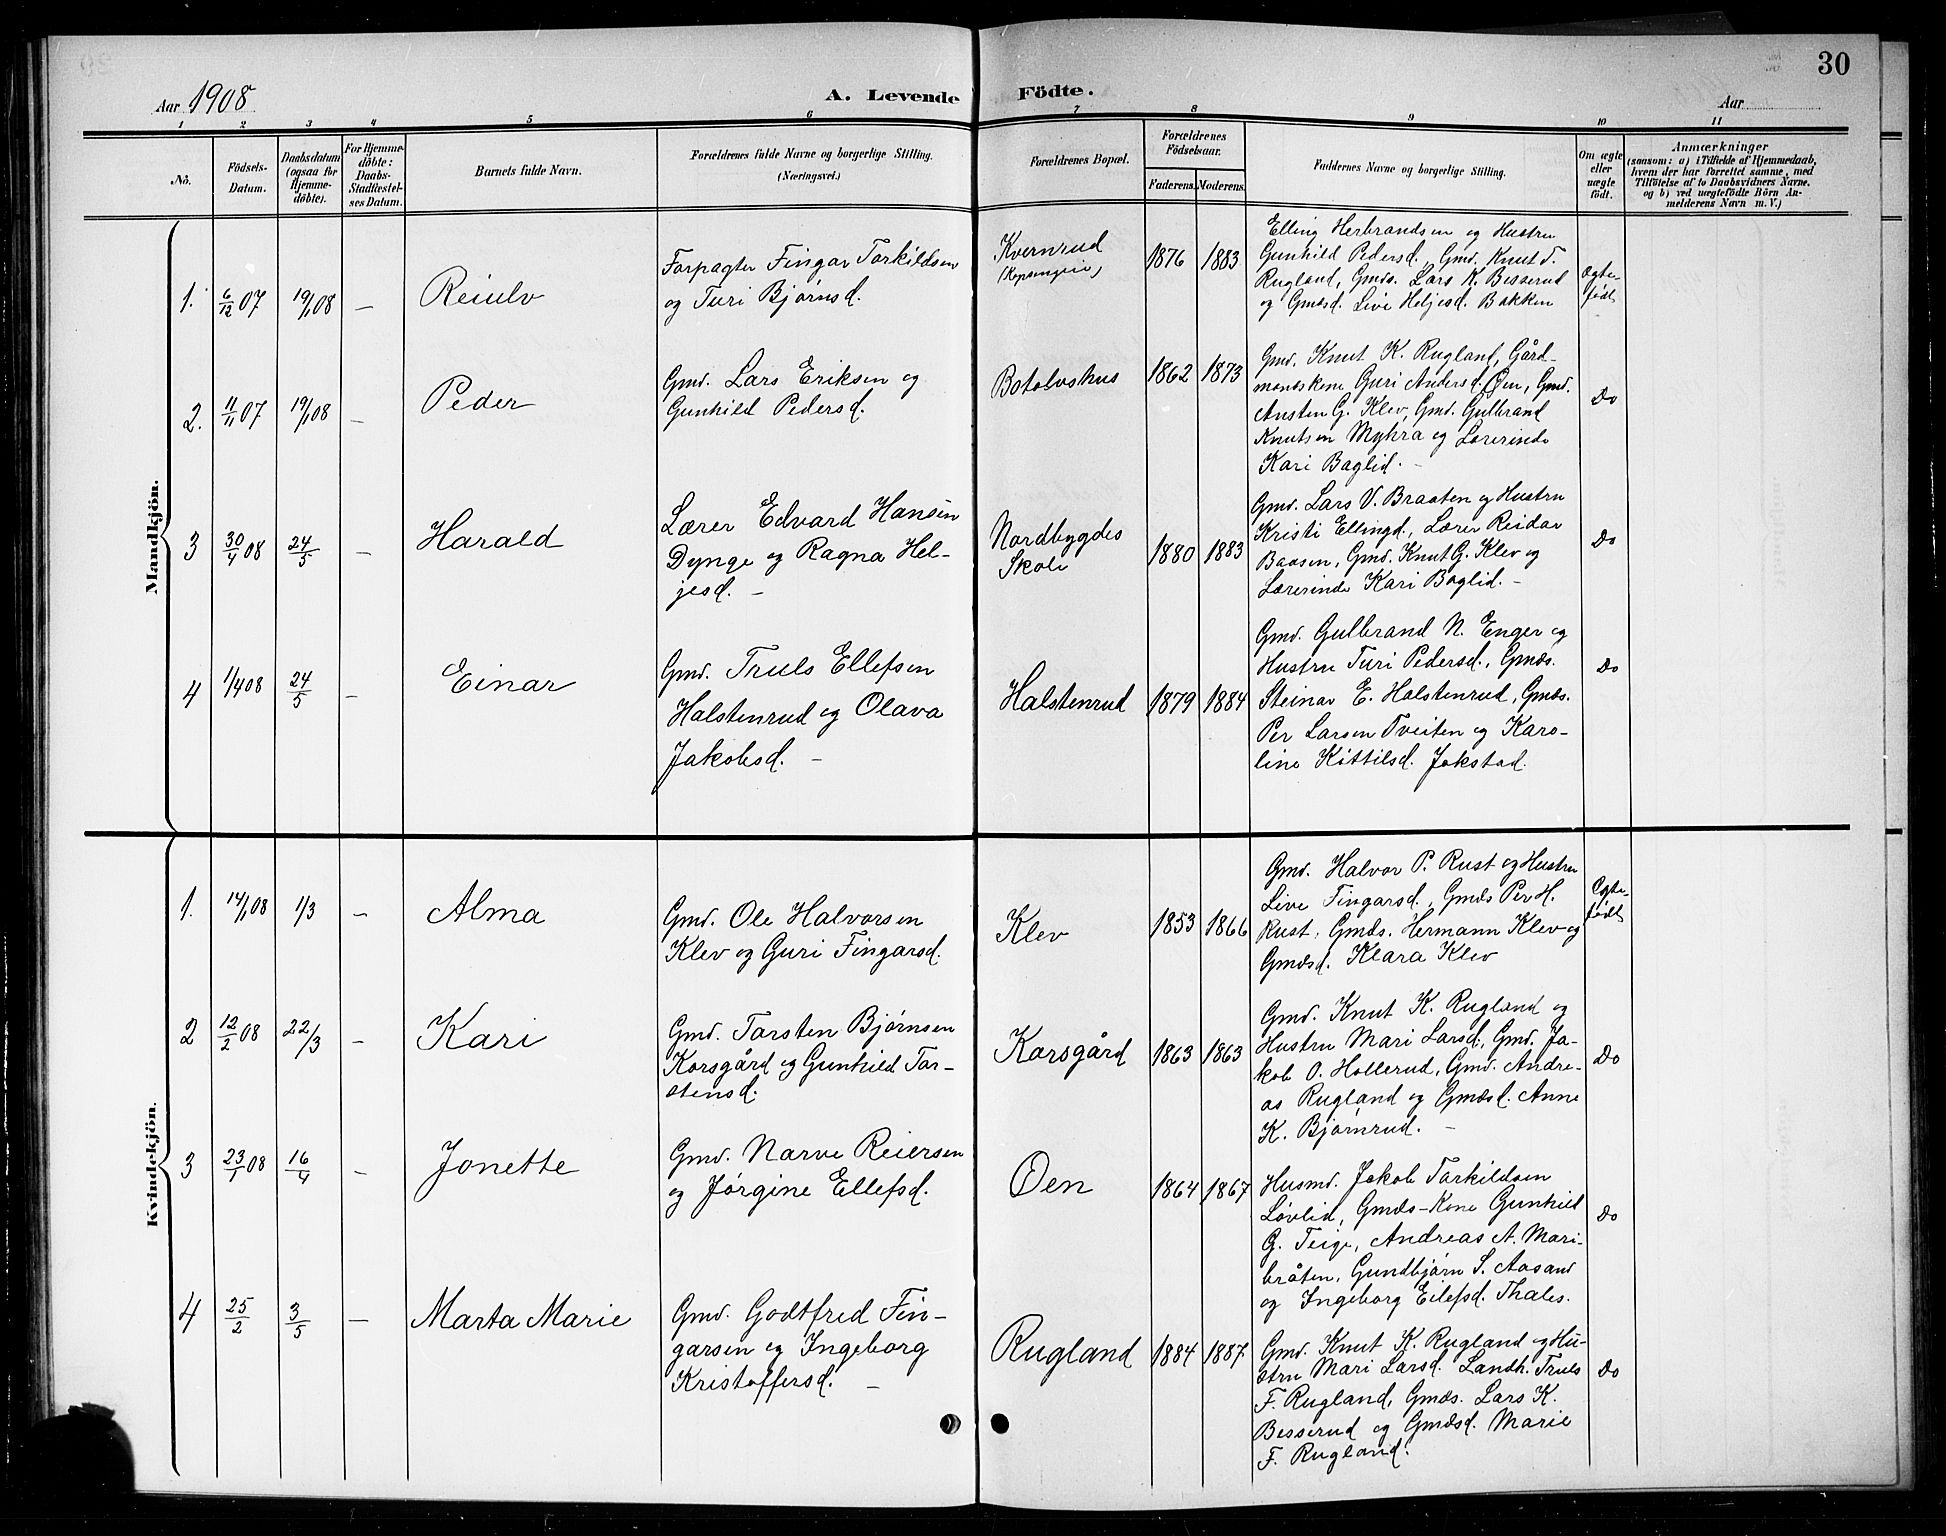 30
Aar 1908
A. Levende Födte.
Aar
1 2 3 4 5 6 7 8 9 10 11
No.
Födsels-
Datum.
Daabsdatum
(ogsaa for
Hjemme-
döbte).
For Hjemme-
döbte:
Daabs-
Stadfæstel-
ses Datum.
Barnets fulde Navn.
Forældrenes fulde Navne og borgerlige Stilling.
(Næringsvei.)
Forældrenes Bopæl.
Forældrenes
Födselsaar.
Faderens. Moderens.
Faddernes Navne og borgerlige Stilling.
Om ægte
eller
uægte
födt.
Anmærkninger
(saasom: a) i Tilfælde af Hjemmedaab,
hvem der har forrettet samme, med
Tilföielse af to Daabsvidners Navne.
og b) ved uægtefödte Börn An-
melderens Navn m. V.)
Mandkjön.
1. 6/12 07 19/1 08 — Reiulv
Forpagter Fingar Torkildsen
og Turi Bjørnsd.
Kvernrud
1876 1883
Elling Herbrandsen og Hustru
Gunhild Pedersd., Gmd. Knut T.
Rugland, Gmds. Lars K. Besserud
og Gmdsd. Live Heljesd. Bakken
Ægte-
født
2. 11/11 07 19/1 08 — Peder
Gmd. Lars Eriksen og
Gunhild Pedersd.
Botolvshus
1862 1873
Gmd. Knut K. Rugland, Gård-
mandskone Guri Andersd. Øen, Gmd.
Austen G. Klev, Gmd. Gulbrand
Knutsen Myhra og Lærerinde
Kari Baglid. —
Do
3 30/4 08 24/5 — Harald
Lærer Edvard Hansen
Dynge og Ragna Hel-
jesd. —
Nordbygdes
Skole
1880 1883
Gmd. Lars V. Braaten og Hustru
Kristi Ellingd., Lærer Reidar
Baasen, Gmd. Knut G. Klev og
Lærerinde Kari Baglid. —
Do
4 1/4 08 24/5 — Einar
Gmd. Truls Ellefsen
Halstenrud og Olava
Jakobsd. —
Halstenrud
1879 1884
Gmd. Gulbrand N. Enger og
Hustru Turi Pedersd., Gmds.
Steinar E. Halstenrud, Gmds.
Per Larsen Tveiten og Karo-
line Kittilsd. Jokstad.
Do
Kvindekjön.
1. 14/1 08 1/3 — Alma
Gmd. Ole Halvorsen
Klev og Guri Fingarsd.
Klev
1853 1866
Gmd. Halvor P. Rust og Hustru
Live Fingarsd., Gmds Per H.
Rust, Gmds. Hermann Klev og
Gmdsd. Klara Klev
Ægte-
født
2 12/2 08 22/3 — Kari
Gmd. Torsten Bjørnsen
Korsgård og Gunhild Tor-
stensd.
Korsgård
1863 1863
Gmd. Knut K. Rugland og
Hustru Mari Larsd., Gmd. Ja-
kob O. Hollerud, Gmd. Andre-
as Rugland og Gmdsd. Anne
K. Bjørnrud. —
Do
3 23/1 08 16/4 — Jonette
Gmd. Narve Reiersen
og Jørgine Ellefsd.
Øen
1864 1867
Husmd. Jakob Torkildsen
Løvlid, Gmds-Kone Gunhild
G. Teige, Andreas A. Mari-
bråten, Gundbjørn S. Aasand
og Ingeborg Eilefsd. Thales.
Do
4 25/2 3/5 — Marta Marie
Gmd. Godtfred Fin-
garsen og Ingeborg
Kristoffersd. —
Rugland
1884 1887
Gmd. Knut K. Rugland og Hu-
stru Mari Larsd. Landh. Truls
F. Rugland, Gmds. Lars K.
Besserud og Gmdsd. Marie
F. Rugland.
Do